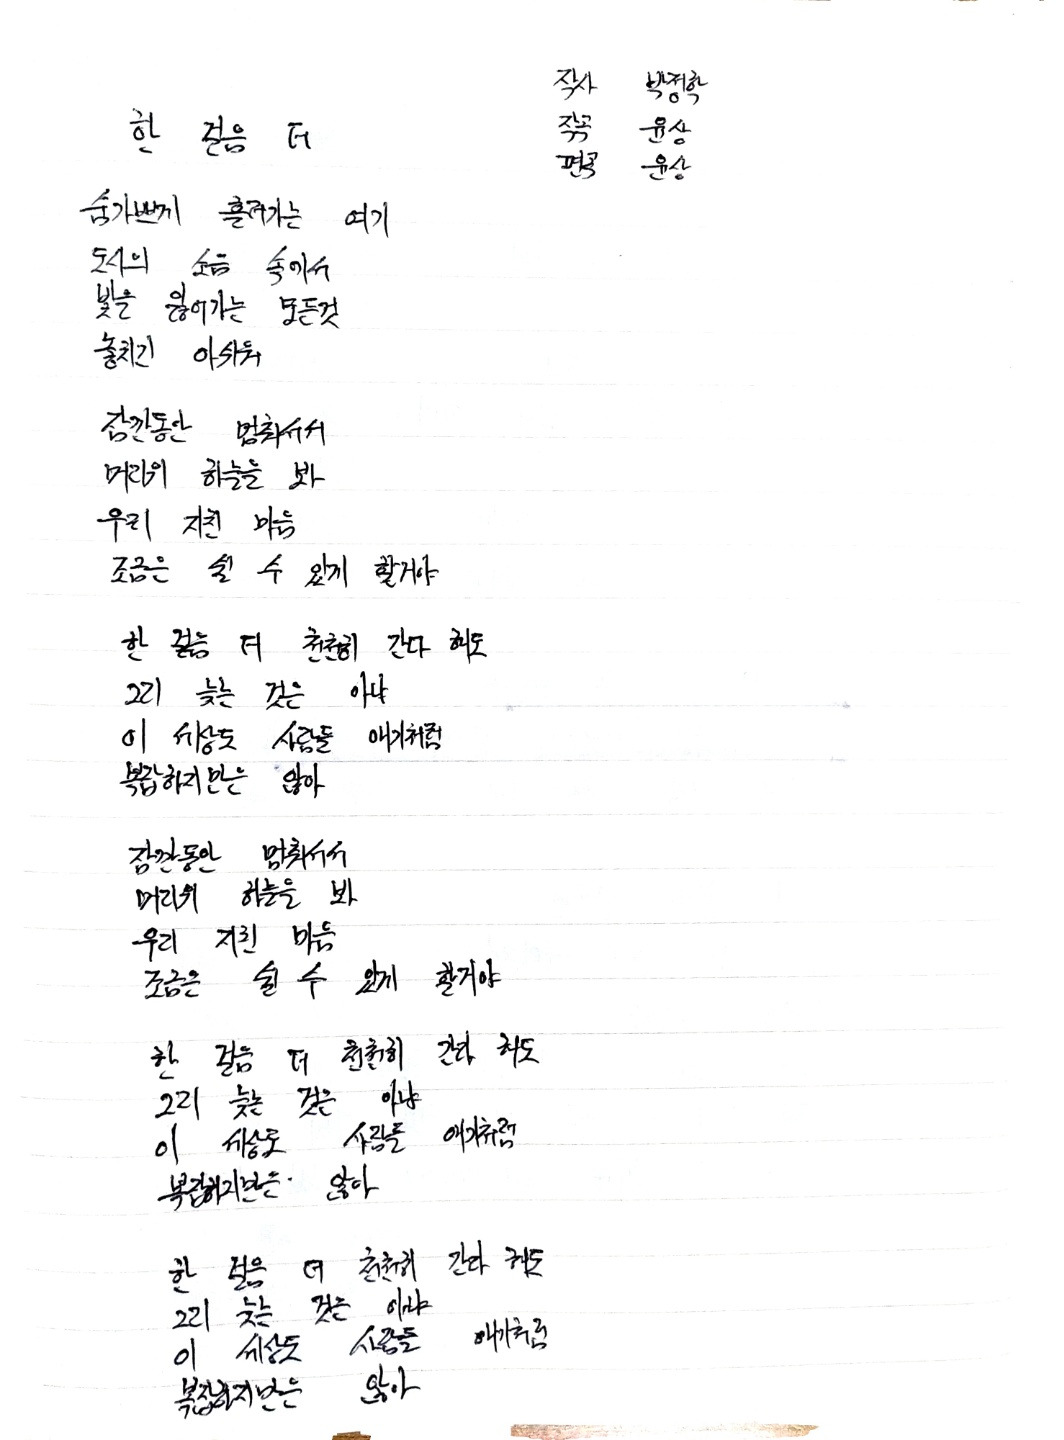 작사 박정학
한 걸음 더
작곡 윤상
편곡 윤상
숨가쁘게 흘러가는 여기
도시의 소음 속에서
빛을 잃어가는 모든것
놓치긴 아쉬워
잠깐동안 멈춰서서
머리위 하늘을 봐
우리 지친 마음
조금은 쉴 수 있게 할거야
한 걸음 더 천천히 간다 해도
그리 늦는 것은 아냐
이 세상도 사람들 얘기처럼
복잡하지만은 않아
잠깐동안 멈춰서서
머리위 하늘을 봐
우리 지친 마음
조금은 쉴 수 있게 할거야
한 걸음 더 천천히 간다 해도
그리 늦는 것은 아냐
이 세상도 사람들 얘기처럼
복잡하지만은 않아
한 걸음 더 천천히 간다 해도
그리 늦는 것은 아냐
이 세상도 사람들 얘기처럼
복잡하지만은 않아